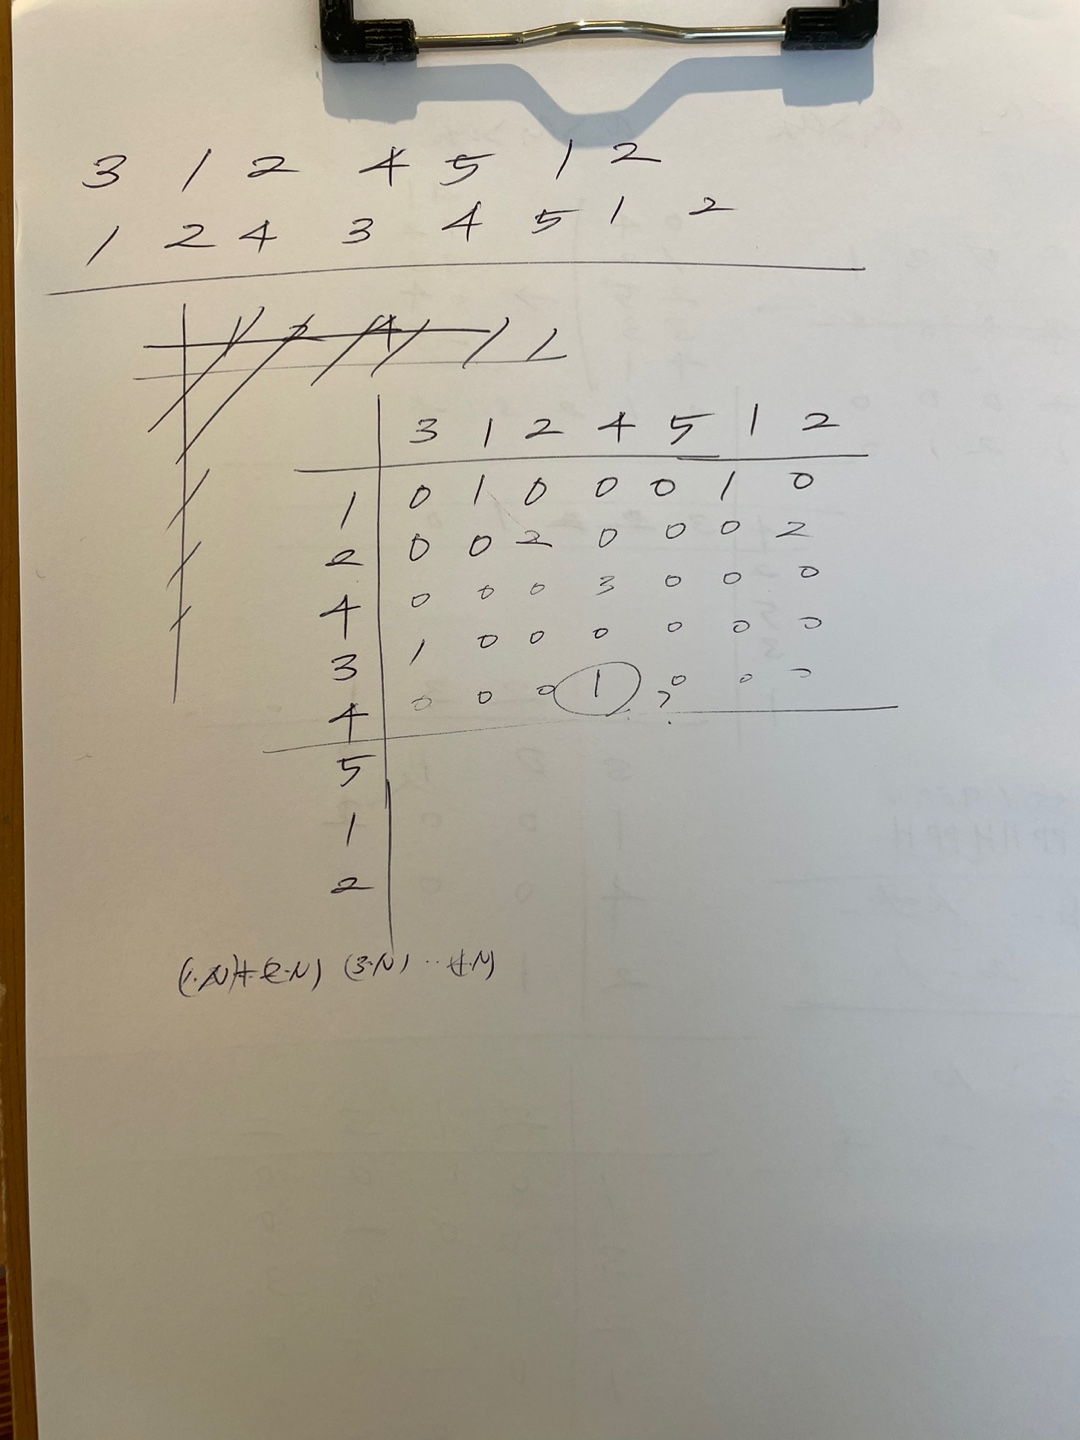 3 1 2 4 5 1 2
1 2 4 3 4 5 1 2
3 1 2 4 5 1 2
1 0 1 0 0 0 1 0
2 0 0 2 0 0 0 2
4 0 0 0 3 0 0 0
3 1 0 0 0 0 0 0
4 0 0 0 1 0 0 0
?
5
1
2
(3·N)